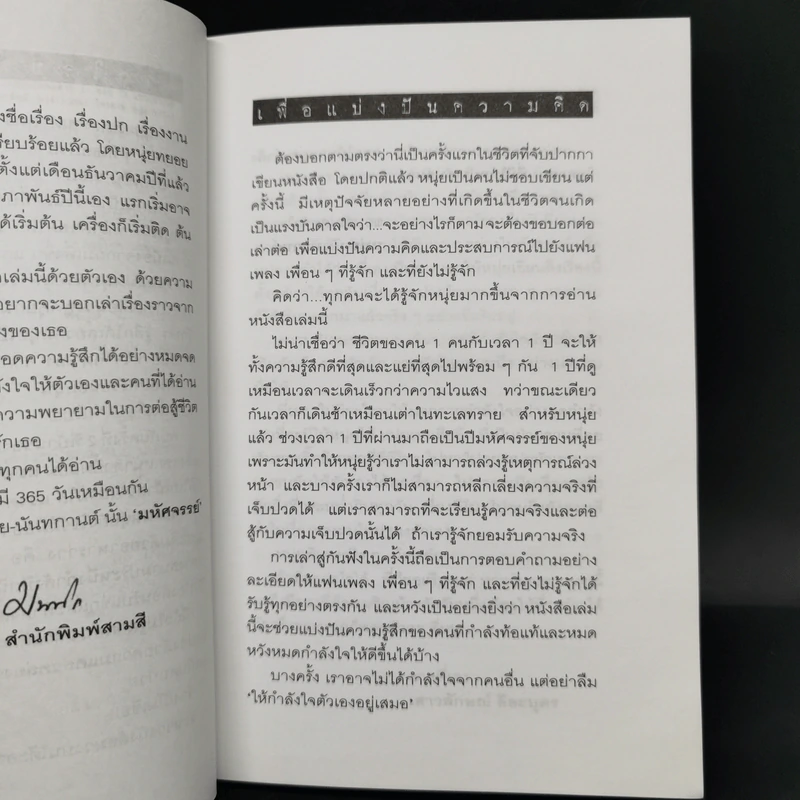 งชื่อเรื่อง เรื่องปก เรื่องงาน
รียบร้อยแล้ว โดยหนุ่ยทยอย
ตั้งแต่เดือนธันวาคมปีที่แล้ว
ภาพันธ์ปีนี้เอง แรกเริ่มอาจ
ด้เริ่มต้น เครื่องก็เริ่มติด ต้น
เล่มนี้ด้วยตัวเอง ด้วยความ
อยากจะบอกเล่าเรื่องราวจาก
งของเธอ
อดความรู้สึกได้อย่างหมดจด
ังใจให้ตัวเองและคนที่ได้อ่าน
ความพยายามในการต่อสู้ชีวิต
รักเธอ
ทุกคนได้อ่าน
มี 365 วันเหมือนกัน
ย-นันทกานต์ นั้น 'มหัศจรรย์'
สำนักพิมพ์สามสี
เพื่อแบ่งปันความคิด
ต้องบอกตามตรงว่านี่เป็นครั้งแรกในชีวิตที่จับปากกา
เขียนหนังสือ โดยปกติแล้ว หนุ่ยเป็นคนไม่ชอบเขียน แต่
ครั้งนี้ มีเหตุปัจจัยหลายอย่างที่เกิดขึ้นในชีวิตจนเกิด
เป็นแรงบันดาลใจว่า...จะอย่างไรก็ตาม จะต้องขอบอกต่อ
เล่าต่อ เพื่อแบ่งปันความคิดและประสบการณ์ไปยังแฟน
เพลง เพื่อน ๆ ที่รู้จัก และที่ยังไม่รู้จัก
คิดว่า...ทุกคนจะได้รู้จักหนุ่ยมากขึ้นจากการอ่าน
หนังสือเล่มนี้
ไม่น่าเชื่อว่า ชีวิตของคน 1 คนกับเวลา 1 ปี จะให้
ทั้งความรู้สึกดีที่สุดและแย่ที่สุดไปพร้อม ๆ กัน 1 ปีที่ดู
เหมือนเวลาจะเดินเร็วกว่าความไวแสง ทว่าขณะเดียว
กันเวลาก็เดินช้าเหมือนเต่าในทะเลทราย สำหรับหนุ่ย
แล้ว ช่วงเวลา 1 ปีที่ผ่านมาถือเป็นปีมหัศจรรย์ของหนุ่ย
เพราะมันทำให้หนุ่ยรู้ว่าเราไม่สามารถล่วงรู้เหตุการณ์ล่วง
หน้า และบางครั้งเราก็ไม่สามารถหลีกเลี่ยงความจริงที่
เจ็บปวดได้ แต่เราสามารถที่จะเรียนรู้ความจริงและต่อ
สู้กับความเจ็บปวดนั้นได้ ถ้าเรารู้จักยอมรับความจริง
การเล่าสู่กันฟังในครั้งนี้ถือเป็นการตอบคำถามอย่าง
ละเอียดให้แฟนเพลง เพื่อน ๆ ที่รู้จัก และที่ยังไม่รู้จักได้
รับรู้ทุกอย่างตรงกัน และหวังเป็นอย่างยิ่งว่า หนังสือเล่ม
นี้จะช่วยแบ่งปันความรู้สึกของคนที่กำลังท้อแท้และหมด
หวังหมดกำลังใจให้ดีขึ้นได้บ้าง
บางครั้ง เราอาจไม่ได้กำลังใจจากคนอื่น แต่อย่าลืม
'ให้กำลังใจตัวเองอยู่เสมอ'